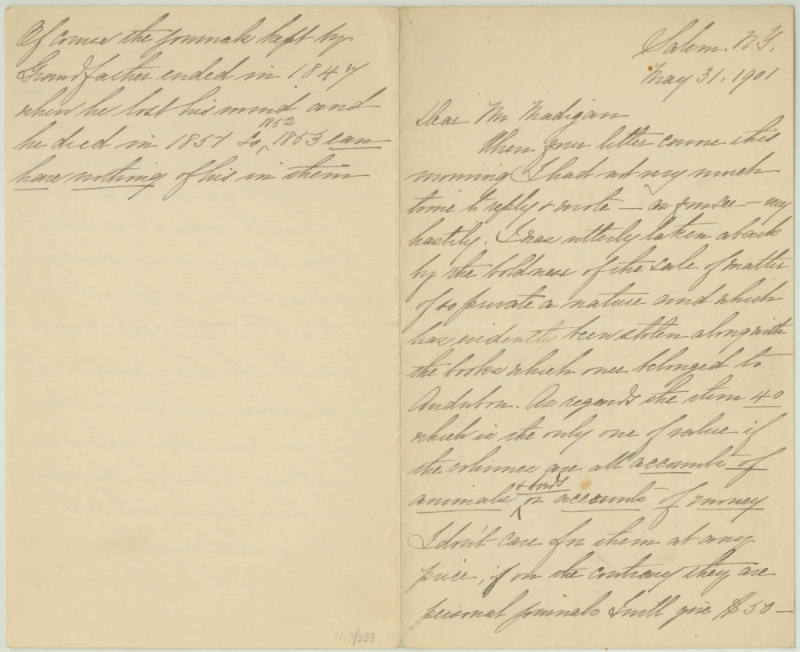 Salem. N.Y.
May 31. 1901
Dear Mr Madigan
When your letter came this
morning I had not very much
time to reply & wrote — as you see — very
hastily. I was utterly taken aback
by the boldness of the sale of matter
of so private a nature and which
has evidently been stolen along with
the books which once belonged to
Audubon. As regards the item 40
which is the only one of value if
the volumes are all accounts of
animals & birds or accounts of money
I don't care for them at any
price, if on the contrary they are
personal journals I will give $50 —
Of course the journals kept by
Grandfather ended in 1847
when he lost his mind and
he died in 1851 So 1852 1853 can
have nothing of his in them